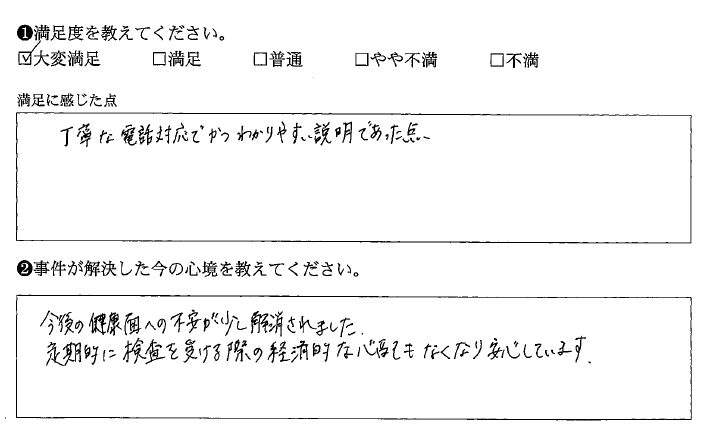 ❶満足度を教えてください。
☑大変満足 □満足 □普通 □やや不満 □不満
満足に感じた点
丁寧な電話対応でかつわかりやすい説明であった点
❷事件が解決した今の心境を教えてください。
今後の健康面への不安が少し解消されました.
定期的に検査を受ける際の経済的な心配もなくなり安心しています.